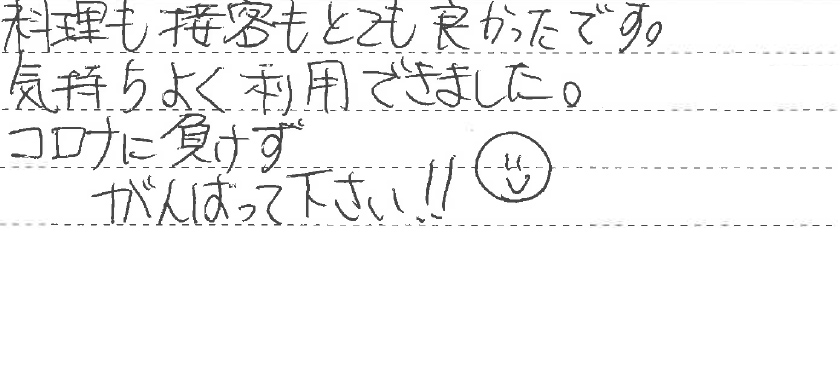 料理も接客もとても良かったです。
気持ちよく利用できました。
コロナに負けず
がんばって下さい!!